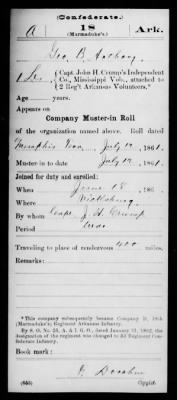 (Confederate.)
A 18 Ark.
(Marmaduke's.)
Geo. B. Anthony
1 Lt., Capt. John H. Crump's Independent
Co., Mississippi Vols., attached to
2 Reg't Arkansas Volunteers.*
Age years.
Appears on
Company Muster-in Roll
of the organization named above. Roll dated
Memphis Tenn, July 12, 1861.
Muster-in to date July 12, 1861.
Joined for duty and enrolled:
When June 18, 186
Where Vicksburg
By whom Capt. J. H. Crump
Period War
Traveling to place of rendezvous 400 miles.
Remarks:
*This company subsequently became Company A, 18th
(Marmaduke's) Regiment Arkansas Infantry.
By S. O. No. 25, A. & I. G. O., dated January 31, 1862, the
designation of the regiment was changed to 3d Regiment Con-
federate Infantry.
Book mark:
(655) Copyist.